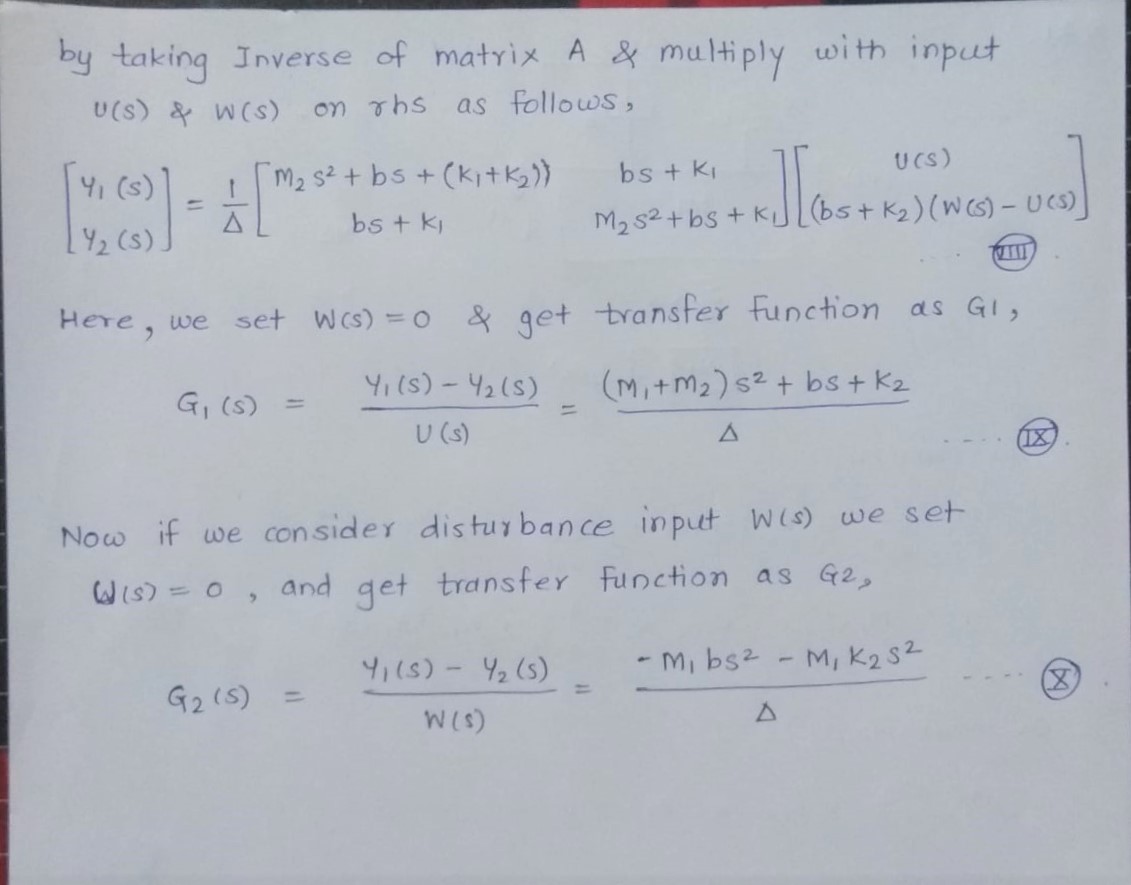 by taking Inverse of matrix A & multiply with input
U(s) & W(s) on rhs as follows,
[Y₁(s) Y₂(s)] = 1/Δ [M₂s² + bs + (K₁+K₂)} bs + K₁ ; bs + K₁ M₂s² + bs + K₁] [U(s) ; (bs + K₂)(W(s) − U(s)]
.. . VIII .
Here, we set W(s) = 0 & get transfer function as G1,
G₁(s) = Y₁(s) − Y₂(s) / U(s) = (M₁+M₂)s² + bs + K₂ / Δ .... IX .
Now if we consider disturbance input W(s) we set
W(s) = 0 , and get transfer function as G2,
G₂(s) = Y₁(s) − Y₂(s) / W(s) = - M₁bs² - M₁K₂s² / Δ .... X .